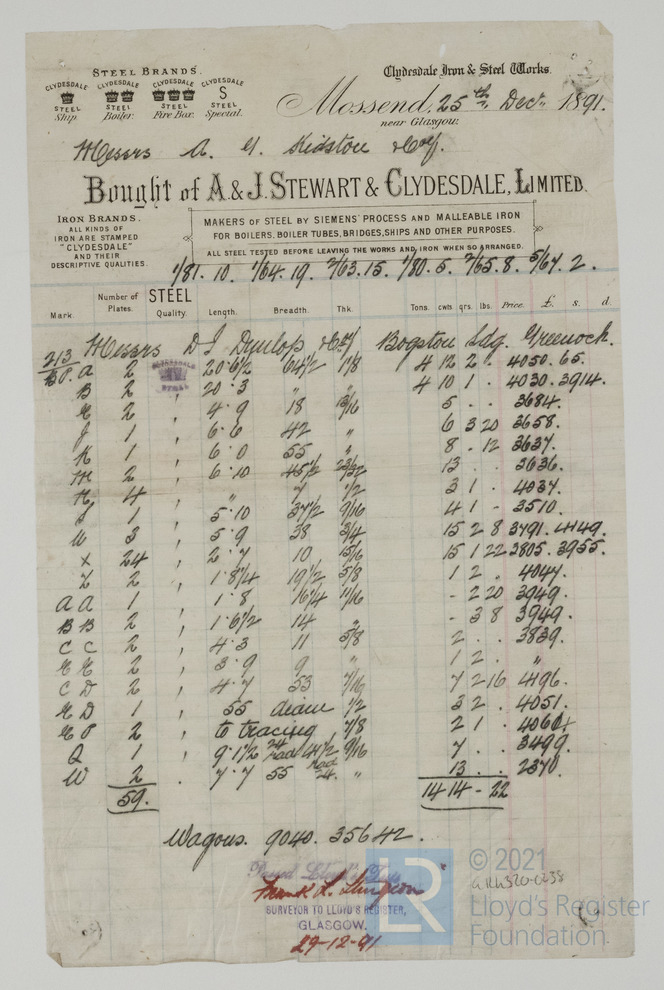 STEEL BRANDS.
CLYDESDALE CLYDESDALE CLYDESDALE CLYDESDALE
S
STEEL STEEL STEEL STEEL
Ship Boiler Fire Box. Special.
Clydesdale Iron & Steel Works.
Mossend, 25th Decr. 1891.
near Glasgow.
Messrs A. G. Kidston & Coy.
Bought of A. & J. STEWART & CLYDESDALE, LIMITED.
IRON BRANDS.
ALL KINDS OF
IRON ARE STAMPED
"CLYDESDALE"
AND THEIR
DESCRIPTIVE QUALITIES.
MAKERS OF STEEL BY SIEMENS' PROCESS AND MALLEABLE IRON
FOR BOILERS, BOILER TUBES, BRIDGES, SHIPS AND OTHER PURPOSES.
ALL STEEL TESTED BEFORE LEAVING THE WORKS AND IRON WHEN SO ARRANGED.
1/81. 10. 1/64. 19. 2/63. 15. 1/80. 5. 2/65. 8. 5/67. 2.
Mark. Number of Plates. STEEL Quality. Length. Breadth. Thk. Tons. cwts. qrs. lbs. Price. £. s. d.
Messrs D J Dunlop & Coy Bogston Sdg. Greenock.
213
BP. A 2 20·6 1/2 64 1/2 1 1/8 4 12 2 . 4050. 65.
B 2 " 20·3 " " 4 10 1 . 4030. 3914.
2 " 4·9 18 13/16 5 . . 3684.
J 1 " 6·6 42 " 6 3 20 3658.
K 1 " 6·0 55 " 8 . 12 3637.
M 2 " 6·10 45 1/2 23/32 13 . . 3636.
N 4 " " 7 1/2 3 1 . 4037.
1 " 5·10 37 1/2 9/16 4 1 - 3510.
W 3 " 5·9 38 3/4 15 2 8 3791. 4149.
X 24 " 2·7 10 15/16 15 1 22 3805. 3955.
Z 2 " 1·8 1/4 19 1/2 5/8 1 2 . 4047.
A A 1 " 1·8 16 1/4 11/16 - 2 20 3949.
B B 2 " 1·6 1/2 14 " - 3 8 3949.
C C 2 " 4·3 11 5/8 2 . . 3839.
2 " 3·9 9 " 1 2 . "
C D 2 " 4·7 53 7/16 7 2 16 4196.
1 " 55 diam 1/2 3 2 . 4051.
2 to tracing 7/8 2 1 . 4060
Q 1 " 9·1 1/2 24 rad 44 1/2 9/16 7 . . 3499.
W 2 . 7·7 55 rad 24. " 13 . . 2370.
59. 14 14 - 22
Wagons. 9040. 35642.
Passed Lloyd's Test
Frank L. Sturgeon
SURVEYOR TO LLOYD'S REGISTER,
GLASGOW.
29-12-91
LR
© 2021
Lloyd's Register
Foundation